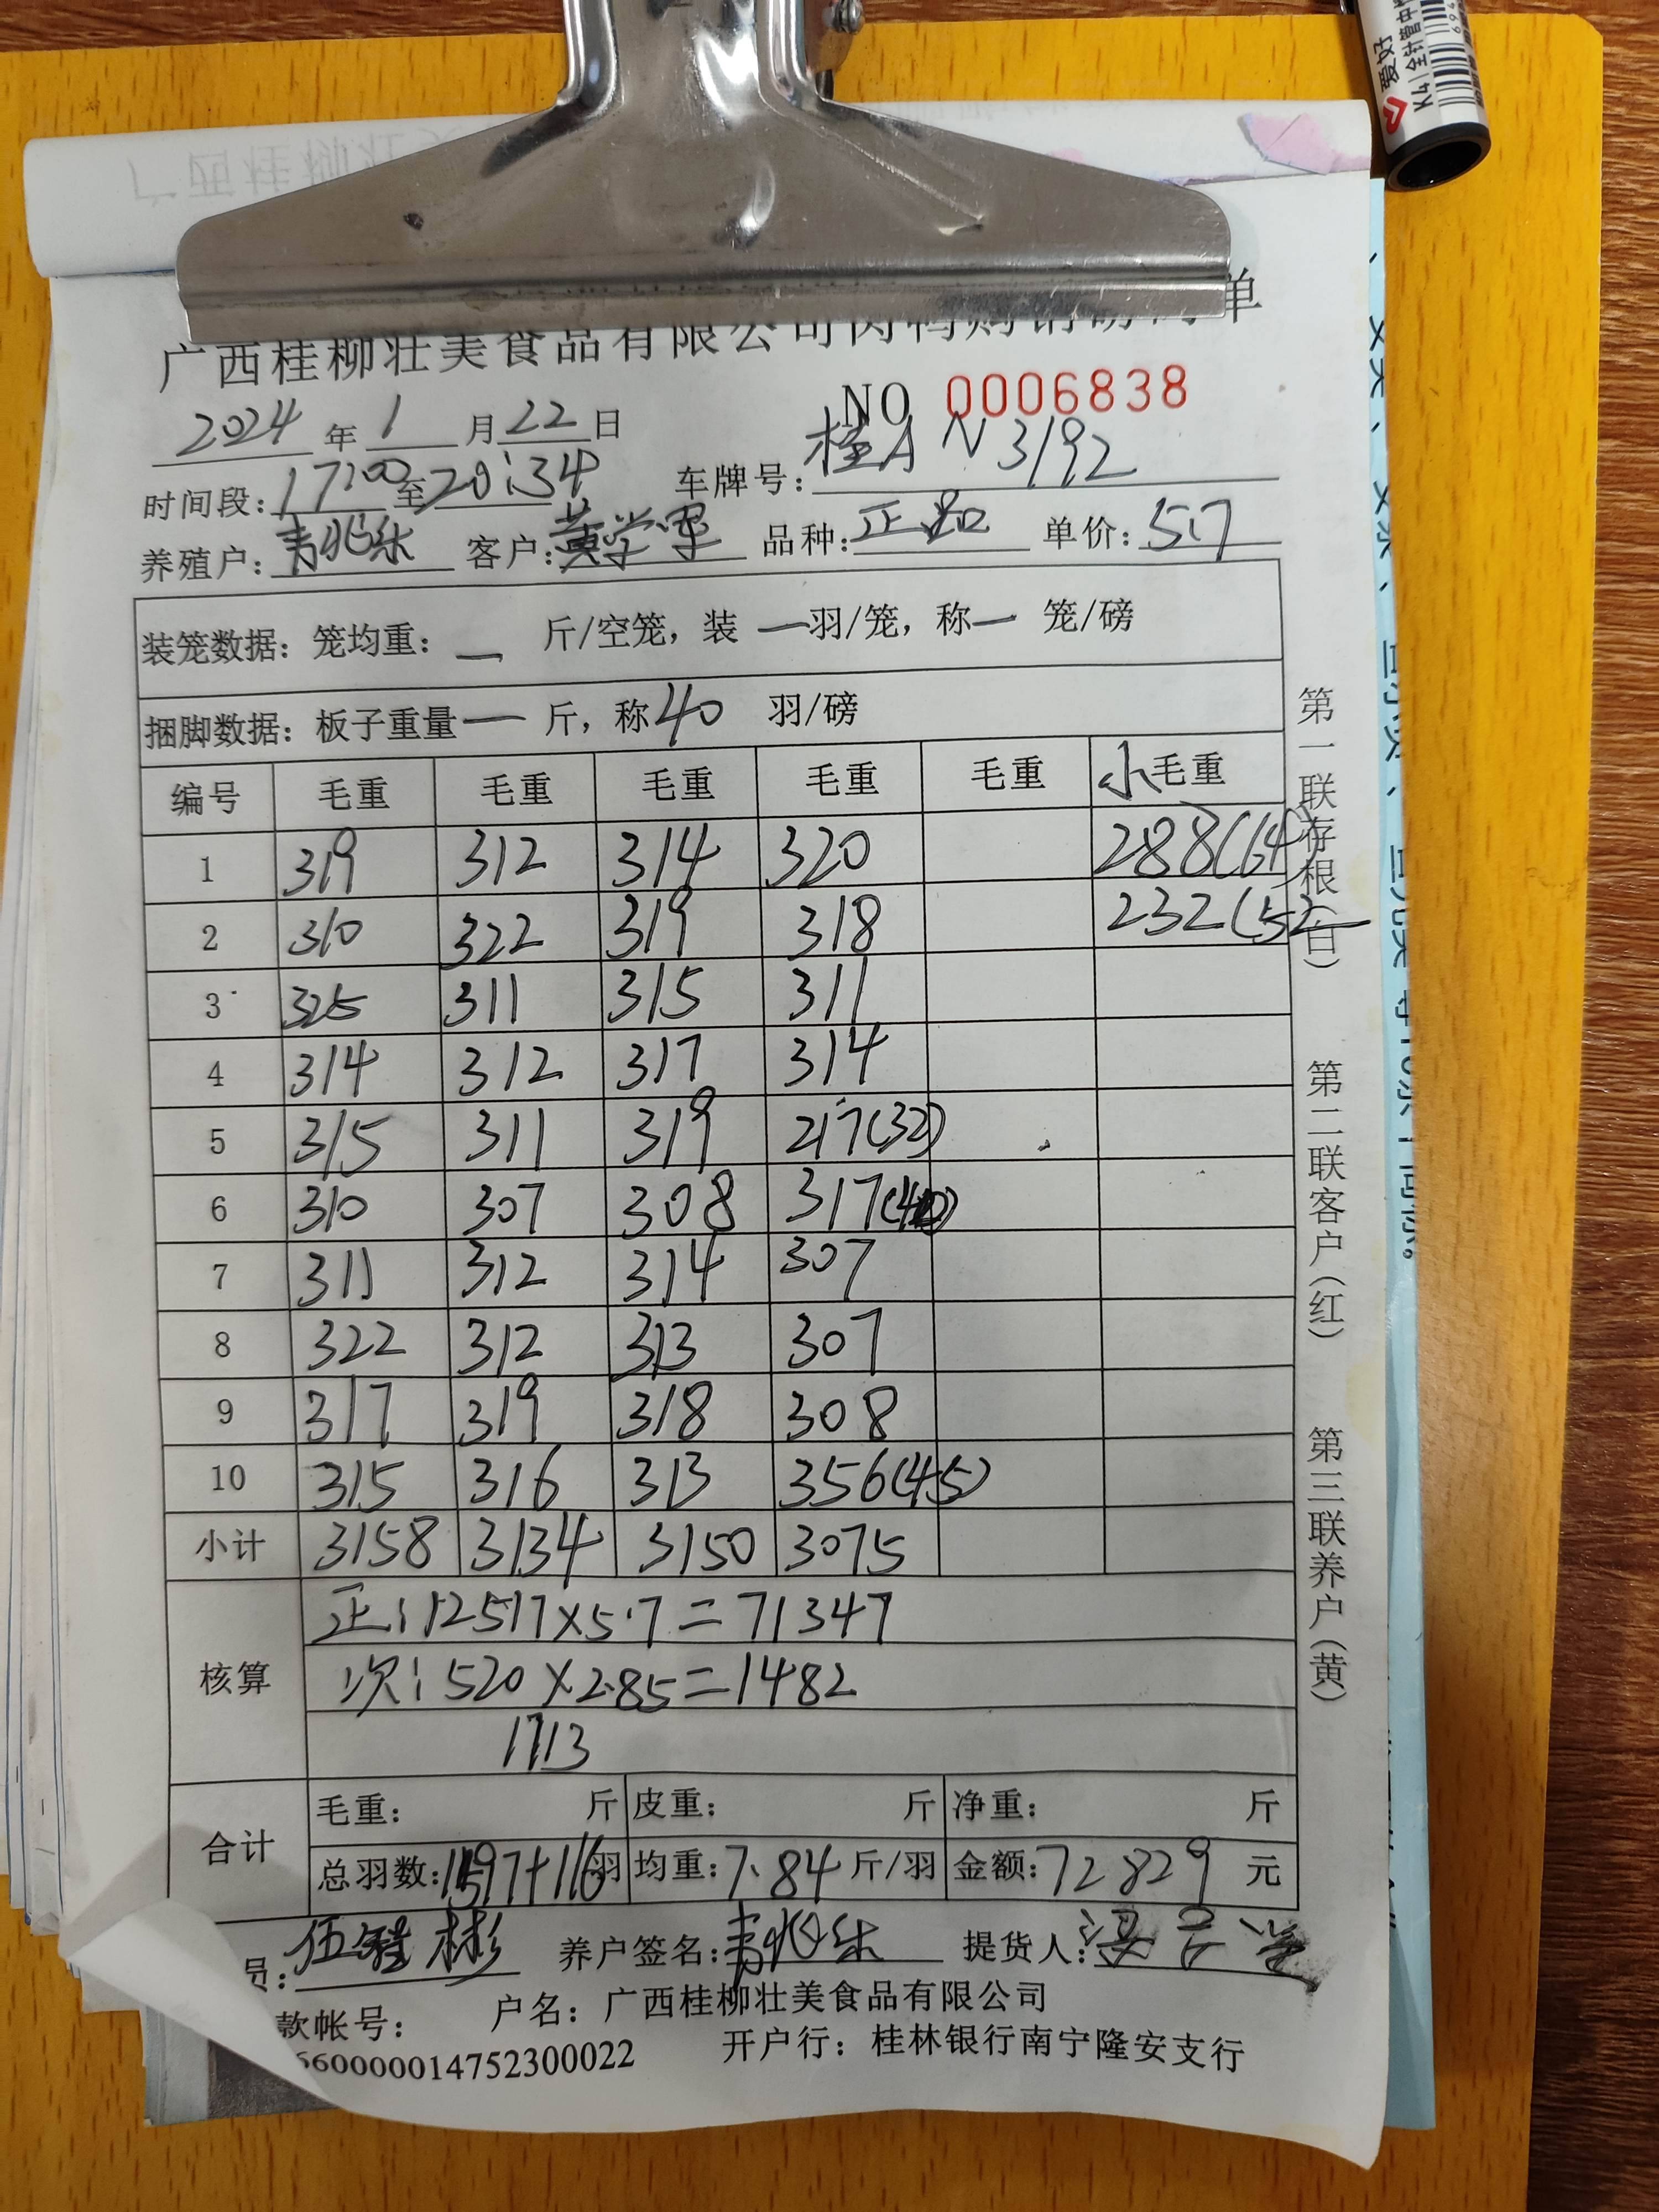 广西桂柳壮美食品有限公司肉鸭购销磅码单
NO 0006838
2024 年 1 月 22 日
时间段: 17:00 至 20:34 车牌号: 桂A N3192
养殖户: 韦兆乐 客户: 黄学军 品种: 正品 单价: 5.7
装笼数据: 笼均重: — 斤/空笼, 装 — 羽/笼, 称 — 笼/磅
捆脚数据: 板子重量 — 斤, 称 40 羽/磅
编号 毛重 毛重 毛重 毛重 毛重 小毛重
1 319 312 314 320 288(64)
2 310 322 319 318 232(52
3 325 311 315 311
4 314 312 317 314
5 315 311 319 217(32)
6 310 307 308 317(40)
7 311 312 314 307
8 322 312 313 307
9 317 319 318 308
10 315 316 313 356(45)
小计 3158 3134 3150 3075
核算
正: 12517×5.7=71347
次: 520×2.85=1482
1713
合计
毛重: 斤 皮重: 斤 净重: 斤
总羽数: 1597+116 羽 均重: 7.84 斤/羽 金额: 72829 元
员: 养户签名: 韦兆乐 提货人:
款帐号: 户名: 广西桂柳壮美食品有限公司
660000014752300022 开户行: 桂林银行南宁隆安支行
第一联存根(白)
第二联客户(红)
第三联养户(黄)
爱好
K4 全针管中性